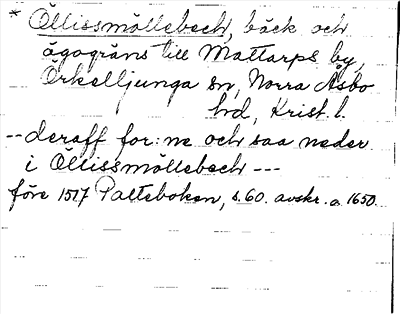 * Öllissmöllebech, bäck och
ägogräns till Mattarps by,
Örkelljunga sn, Norra Åsbo
hd, Krist. l.
-- deraff for: ne och saa neder
i Öllissmöllebech ---
före 1517 Palteboken, s. 60. avskr. a 1650.